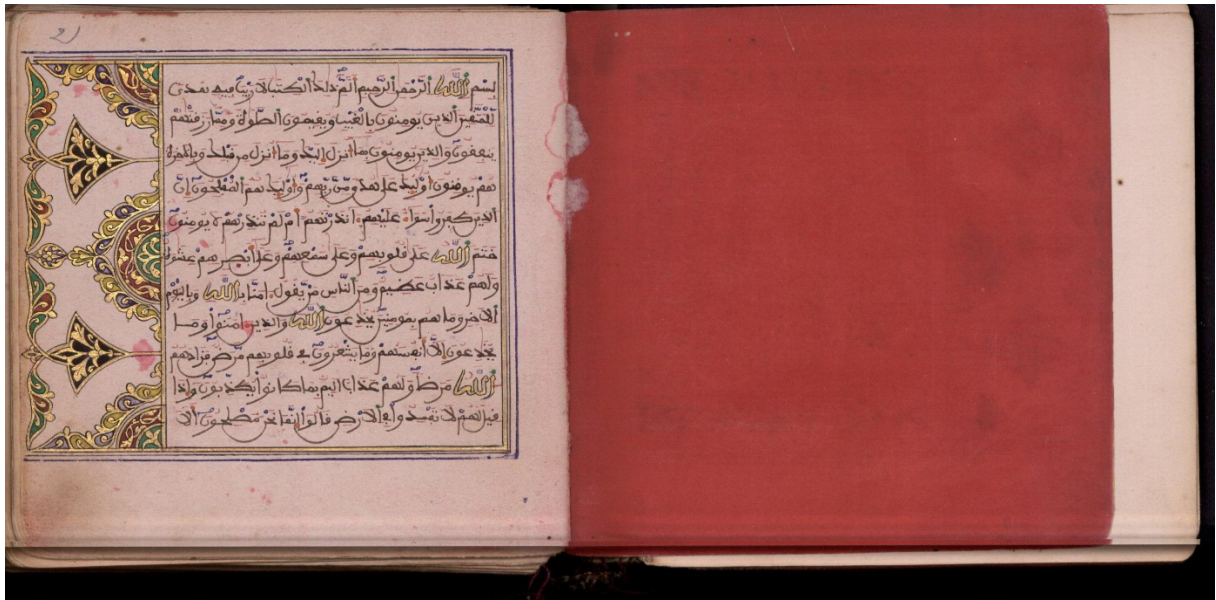 2
بسم الله الرحمن الرحيم الم ذلك الكتب لا ريب فيه هدى
للمتقين الذين يومنون بالغيب ويقيمون الصلوة ومما رزقنهم
ينفقون والذين يومنون بما أنزل إليك وما أنزل من قبلك وبالاخرة
هم يوقنون أوليك على هدى من ربهم وأوليك هم المفلحون إن
الذين كفروا سواء عليهم ءانذرتهم أم لم تنذرهم لا يومنون
ختم الله على قلوبهم وعلى سمعهم وعلى أبصرهم غشوة
ولهم عذاب عظيم ومن الناس من يقول ءامنا بالله وباليوم
الاخر وما هم بمومنين يخدعون الله والذين ءامنوا وما
يخدعون إلا أنفسهم وما يشعرون في قلوبهم مرض فزادهم
الله مرضا ولهم عذاب اليم بما كانوا يكذبون وإذا
قيل لهم لا تفسدوا في الارض قالوا إنما نحن مصلحون ألا